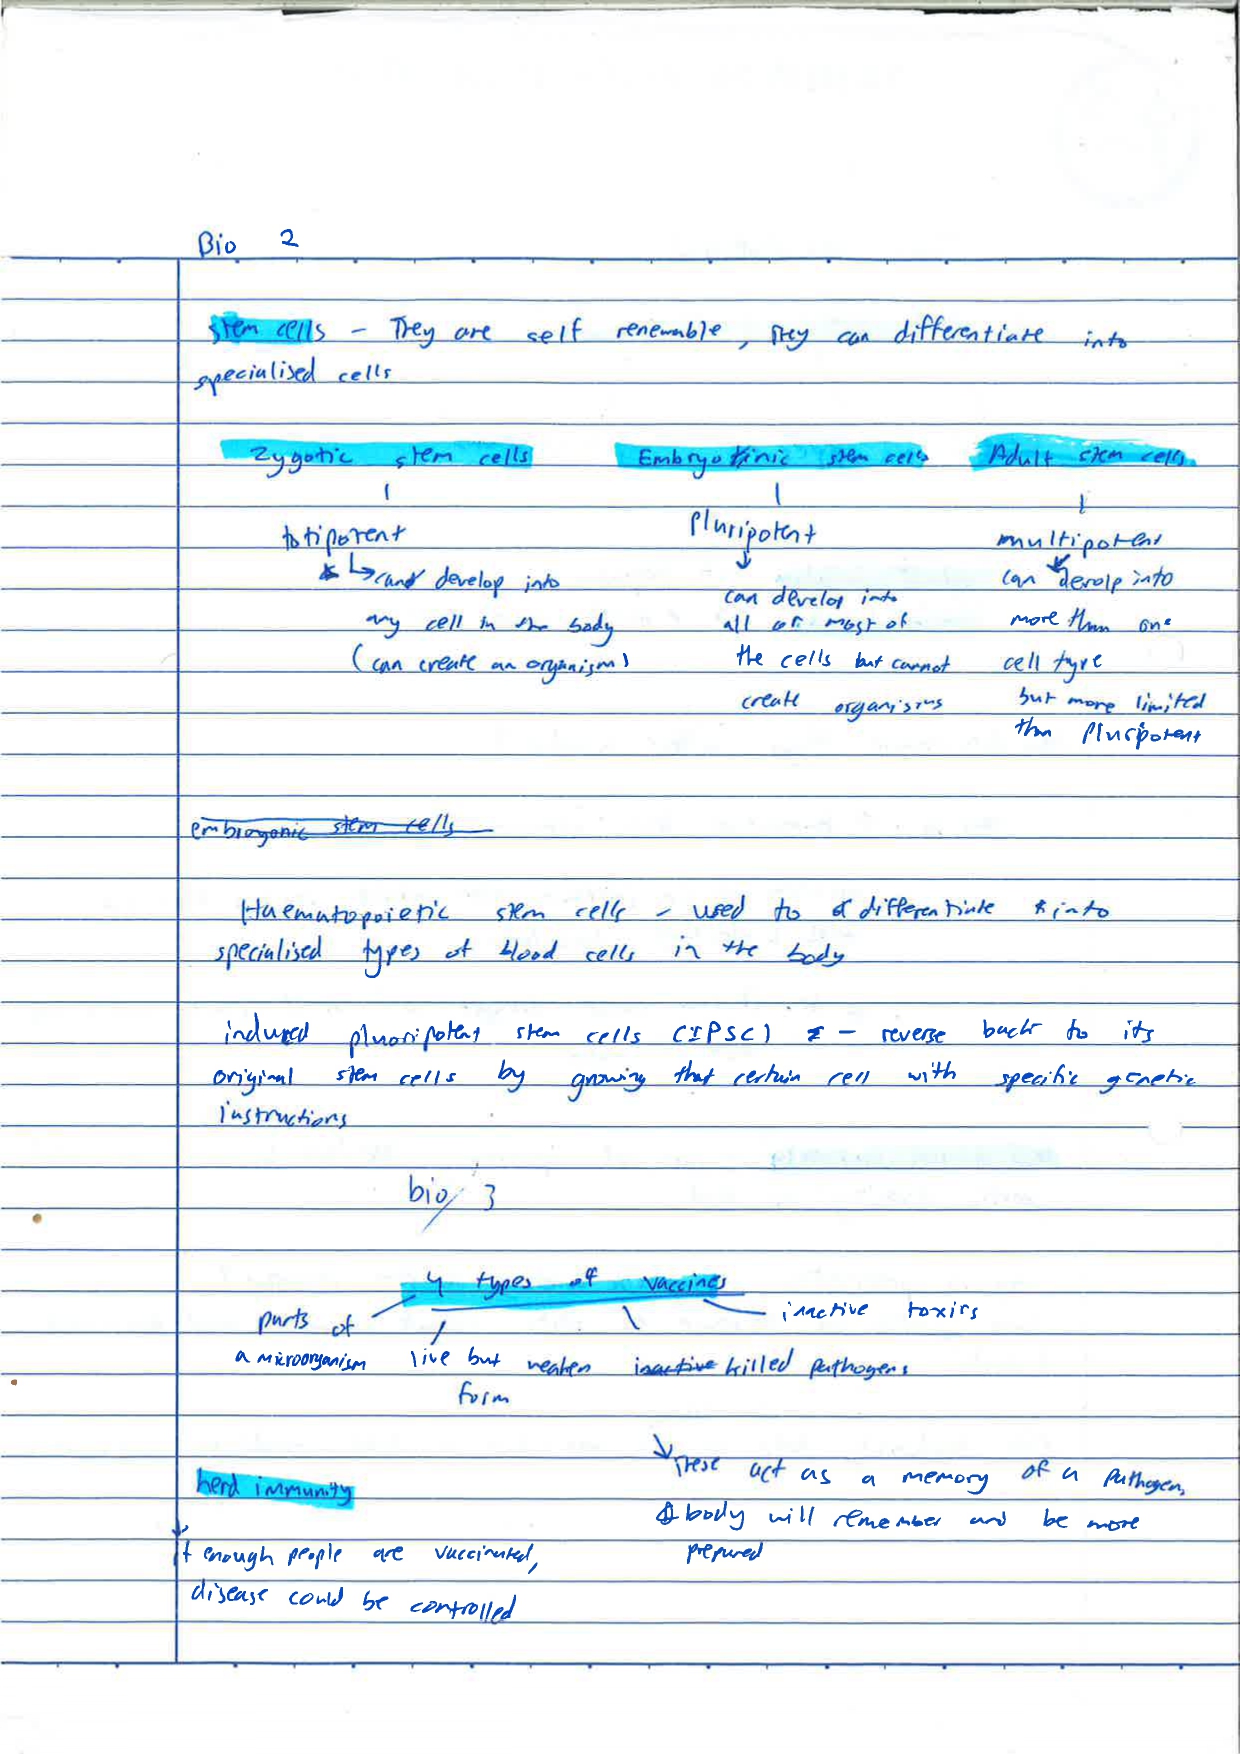 Bio 2
stem cells - They are self renewable, they can differentiate into
specialised cells
Zygotic stem cells
Embryotinic stem cells
Adult stem cells
totipotent
can develop into
any cell in the body
(can create an organism)
Pluripotent
can develop into
all or most of
the cells but cannot
create organisms
multipotent
can devolp into
more than one
cell type
but more limited
than Pluripotent
embriogonic stem cells
Haematopoietic stem cells - used to differentiate into
specialised types of blood cells in the body
induced pluoripotent stem cells (IPSC) - reverse back to its
original stem cells by growing that certain cell with specific genetic
instructions
bio 3
4 types of vaccines
parts of
a microorganism
live but weaken
form
inactive killed pathogens
inactive toxirs
These act as a memory of a Pathogen,
body will remember and be more
prepared
herd immunity
if enough people are vaccinated,
disease could be controlled